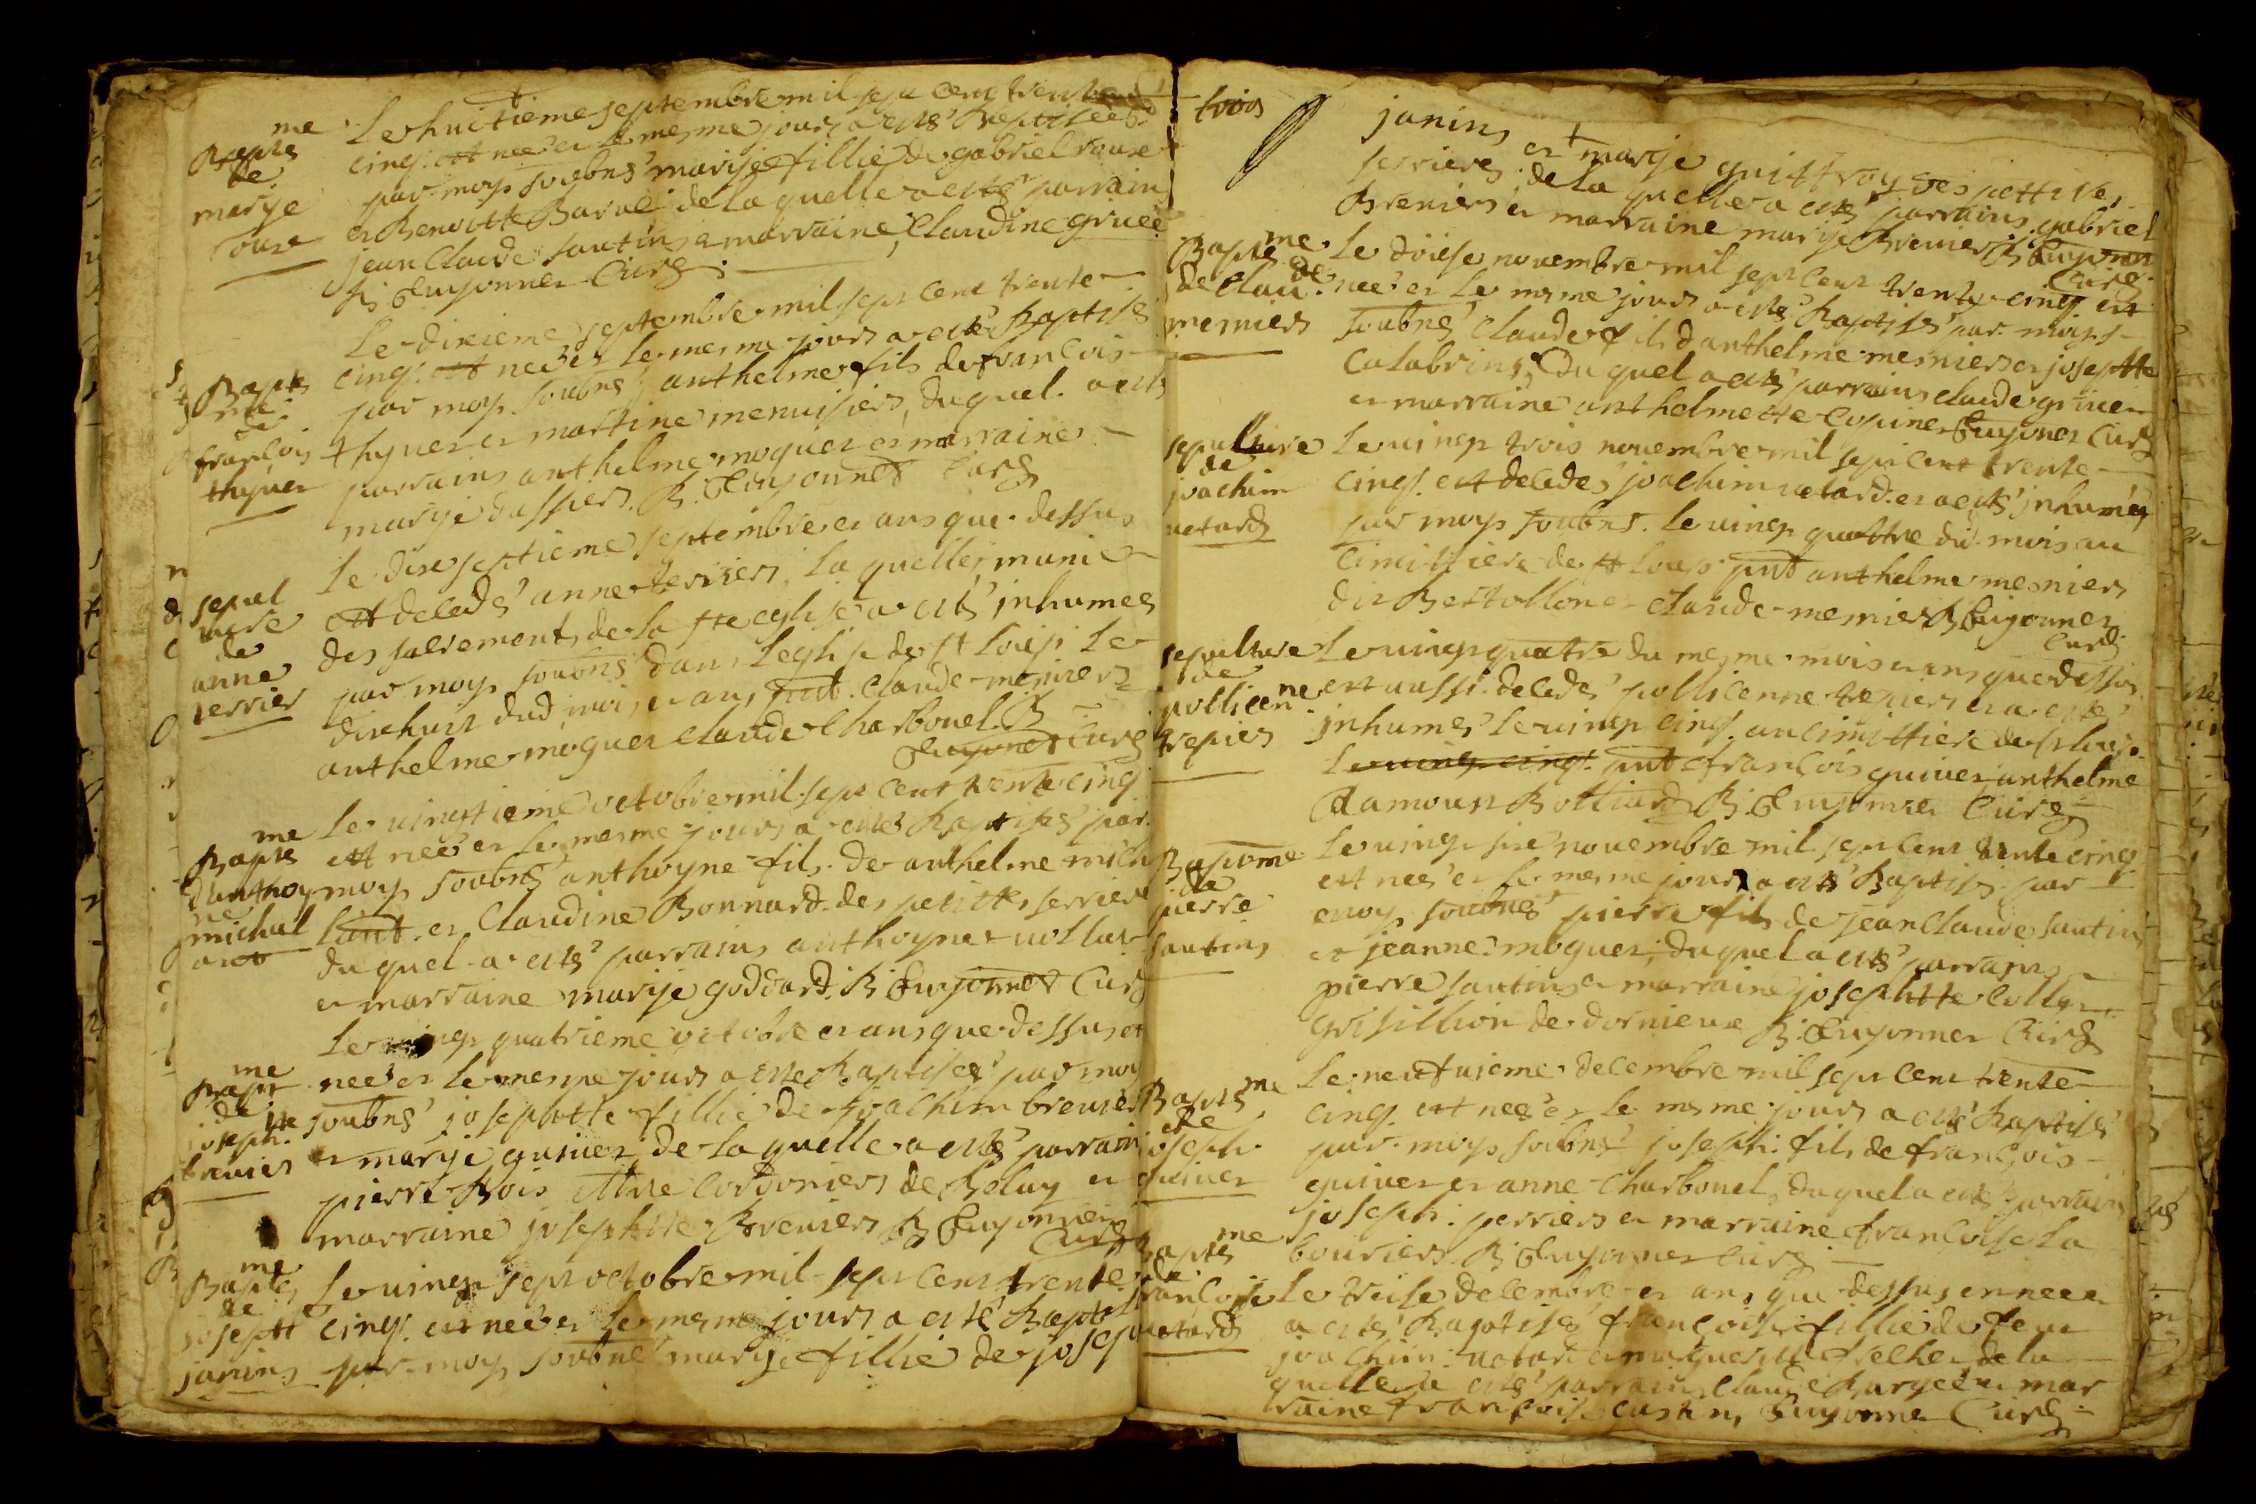 Bapte
me
de
marye
roux
Le huitieme septembre mil sept cent trente
cinq est nee et le mesme jour a esté Baptisée
par moy soubné marye fillie de gabriel roux
et Benoitte Barul de la quelle a esté parrain
jean Claude santin et marraine Claudine gruee
B Guyonnet Curé
Bapte
me
de
françois
thyuet
Le dixieme septembre mil sept cent trente
cinq est nee et le mesme jours a esté Baptisé
par moy soubné anthelme fils de françois
thyuet et martine menuisiers, duquel a esté
parrains anthelme moquet et marraine
marye dassiers B. Guyonnet Curé
sepul
ture
de
anne
terrier
Le dix septieme septembre et ans que dessus
est decede anne terriers, la quelle munie
des sacrements de la ste eglise a esté inhumee
par moy soubné dans Leglise de st Loup Le
dixhuit dud mois et ans pnt Claude mesniers
anthelme moquet Claude Charbonel B
Guyonet Curé
Bapte
me
d'anthoy
ne
michal
ant
Le vingtieme octobre mil sept cent trente cinq
est nee et le mesme jours a esté Baptisé par
moy soubné anthoyne fils de anthelme mich
lant et Claudine Bonnard des petitte serriere
du quel a esté parrains anthoyne vollat
et marraine marye goddard B Guyonnet Curé
Bapt
me
de
joseph
tte
brenier
Le vingt quatrieme octobre et ans que dessus et
nee et le mesme jours a este Baptisée par moy
soubné josephtte fillie de joachim brenier
et marye quiuer de la quelle a esté parrain
pierre Bois Mtre Cordoniers de Beluy et
marraine josephtte Breniers B Guyonnet
Curé
Bapte
me
de
josept
janins
Le vingt sept octobre mil sept cent trente
cinq est nee et le mesme jours a esté Bapt
par moy soubné marye fillie de josep
trois
janins et marye guiffray des pettites
serrieres, de la quelle a esté parrains gabriel
Breniers et marraine marye Brenier B Guyonet
Curé
Bapte
me
de Clau
de
mesniers
Le doise novembre mil sept cent trente cinq est
nee et le mesme jours a esté Baptisé par moy
soubné Claude fils d'anthelme mesniers et josephtte
Calabrins, Du quel a esté parrains claude gruier
et marraine anthelmette Copine Guyonet Curé
sepulture
de
joachim
uotard
Le vingt trois novembre mil sept cent trente
cinq est decede joachim uotard et a esté inhumé
par moy soubns. Le vingt quattre du mois au
Cimittiere de st Loup pnt anthelme mesniers
dit Bertollone Claude mesnier B Guyonnet
Curé
sepulture
de
pollicen
ne
trepier
Le vingt quatre du mesme mois et ans que dessus
est aussi decede pollicenne trepiers et a esté
inhumee Le vingt cinq au cimittiere de st loup
Le vingt cinq pnt françois quiuer anthelme
damoun Bolliard B. Guyonnet Curé
Baptme
de
pierre
santins
Le vingt six novembre mil sept cent trente cinq
est nee et le mesme jours a esté Baptisé par
moy soubné pierre fils de jean Claude santins
et jeanne moquet, duquel a esté parrains
pierre santins et marraine josephtte Collet
grisillion de dornieux B. Guyonnet Curé
Bapte
me
de
joseph
quiuer
Le neufuieme decembre mil sept cent trente
cinq est nee et le mesme jours a esté Baptisé
par moy soubné joseph fils de françois
quiuer et anne Charbonel, duquel a esté parrain
joseph perriers et marraine françoise la
bouriers B Guyonnet Curé
Bapte
me
de
françoise
uotard
Le treise decembre et ans que dessus et nee et
a esté Bapatisé françoise fillie de feu
joachim uotard et marguerite frecher de la
quelle a esté parrains Claude Baryet et mar
raine françoise Custin, Guyonnet Curé